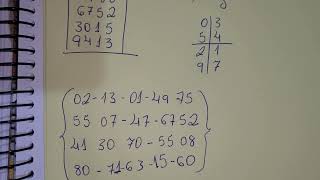 6752
3015
9413
0 3
5 4
2 1
9 7
02-13-01-49-75
55 07-47-6752
41 30 70-55 08
80-71-63-15-60